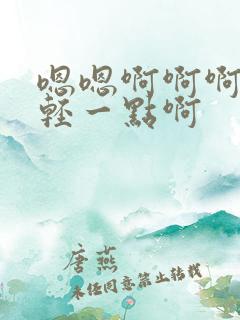 嗯嗯啊啊啊
輕一點啊
唐燕
未任同意禁止转载